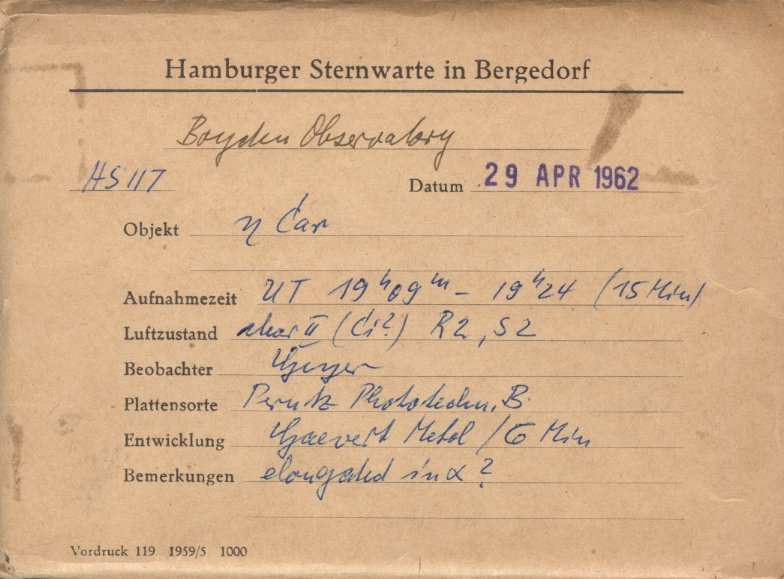 Hamburger Sternwarte in Bergedorf
Boyden Observatory
HS 117 Datum 29 APR 1962
Objekt η Car
Aufnahmezeit UT 19ʰ09ᵐ – 19ʰ24 (15 Min)
Luftzustand clear II (Ci?) R2, S2
Beobachter
Plattensorte Perutz Phototechn. B
Entwicklung Gaevert Metol / 6 Min
Bemerkungen elongated in α ?
Vordruck 119 1959/5 1000